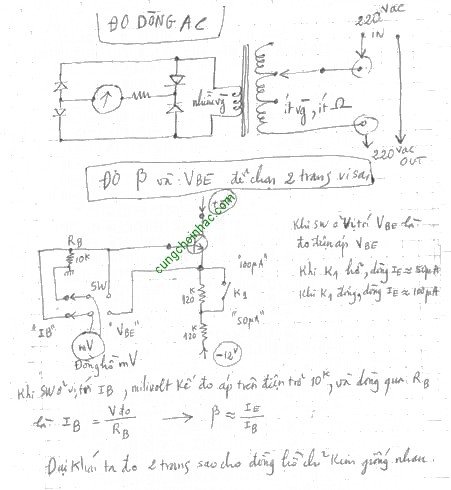 ĐO DÒNG AC
220 VAC
IN
nhiều vg
ít vg, ít Ω
220 VAC
OUT
ĐO β và VBE để chọn 2 trans vi sai
cungchoinhac.com
RB
10K
SW
"IB"
"VBE"
mV
Đồng hồ mV
"100µA"
K1
120K
"50µA"
120K
-12V
Khi SW ở vị trí VBE là
đo điện áp VBE
Khi K1 hở, dòng IE ≈ 50µA
Khi K1 đóng, dòng IE ≈ 100µA
Khi SW ở vị trí IB, milivolt kế đo áp trên điện trở 10K, và dòng qua RB
là IB = Vđo / RB → β ≈ IE / IB
Đại khái ta đo 2 trans sao cho đồng hồ chỉ kim giống nhau.